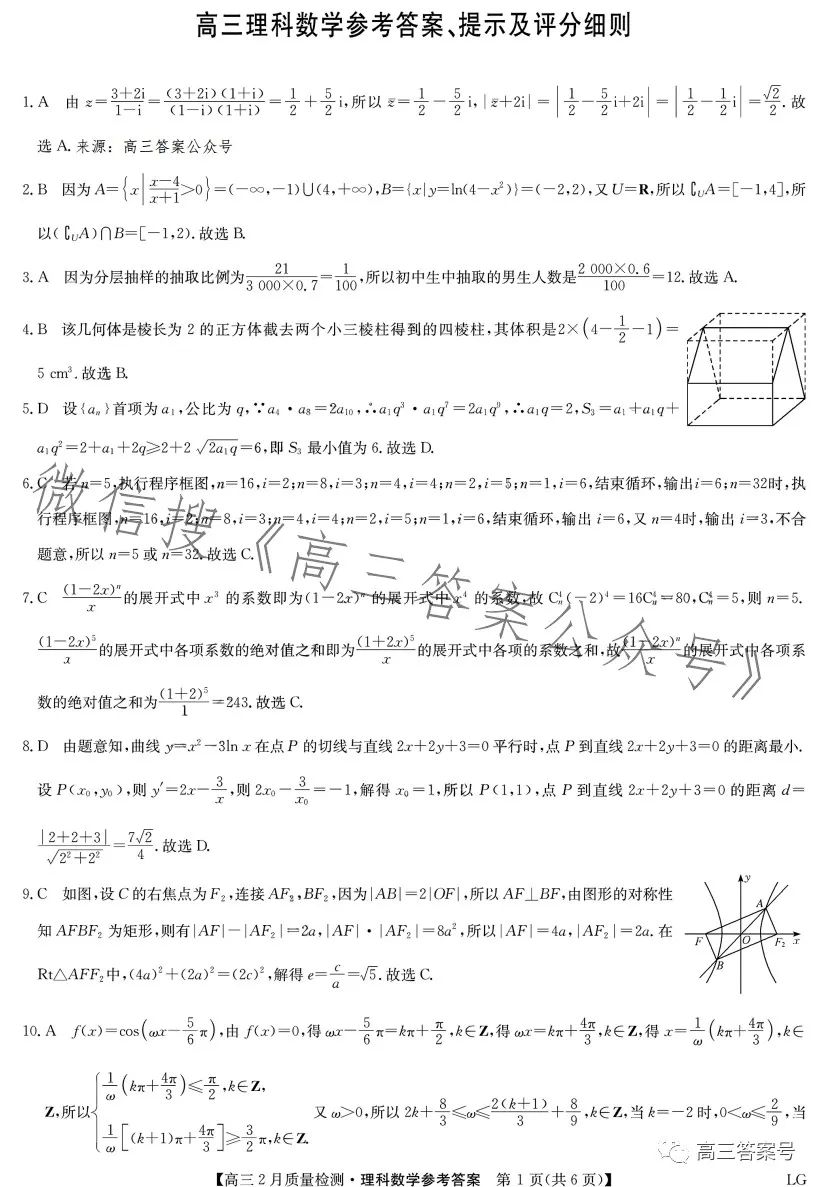 高三理科数学参考答案、提示及评分细则
1. A 由 z=\frac{3+2i}{1-i}=\frac{(3+2i)(1+i)}{(1-i)(1+i)}=\frac{1}{2}+\frac{5}{2}i,所以 \bar{z}=\frac{1}{2}-\frac{5}{2}i,|\bar{z}+2i|=|\frac{1}{2}-\frac{5}{2}i+2i|=|\frac{1}{2}-\frac{1}{2}i|=\frac{\sqrt{2}}{2}.故
选 A. 来源：高三答案公众号
2. B 因为 A={x|\frac{x-4}{x+1}>0}=(-∞,-1)∪(4,+∞),B={x|y=ln(4-x²)}=(-2,2),又 U=R,所以∁_U A=[-1,4],所
以(∁_U A)∩B=[-1,2).故选 B.
3. A 因为分层抽样的抽取比例为\frac{21}{3 000×0.7}=\frac{1}{100},所以初中生中抽取的男生人数是\frac{2 000×0.6}{100}=12.故选 A.
4. B 该几何体是棱长为 2 的正方体截去两个小三棱柱得到的四棱柱,其体积是2×(4-\frac{1}{2}-1)=
5 cm³.故选 B.
5. D 设{a_n}首项为 a₁,公比为 q,∵a₄·a₈=2a₁₀,∴a₁q³·a₁q⁷=2a₁q⁹,∴a₁q=2,S₃=a₁+a₁q+
a₁q²=2+a₁+2q≥2+2\sqrt{2a₁q}=6,即 S₃ 最小值为 6.故选 D.
6. C 若 n=5,执行程序框图,n=16,i=2;n=8,i=3;n=4,i=4;n=2,i=5;n=1,i=6,结束循环,输出i=6;n=32时,执
行程序框图,n=16,i=2;n=8,i=3;n=4,i=4;n=2,i=5;n=1,i=6,结束循环,输出 i=6,又 n=4时,输出 i=3,不合
题意,所以 n=5 或 n=32.故选 C.
7. C \frac{(1-2x)^n}{x}的展开式中 x³ 的系数即为(1-2x)^n 的展开式中 x⁴ 的系数,故 C_n^4(-2)⁴=16C_n^4=80,C_n^4=5,则 n=5.
\frac{(1-2x)^5}{x}的展开式中各项系数的绝对值之和即为\frac{(1+2x)^5}{x}的展开式中各项的系数之和,故\frac{(1-2x)^n}{x}的展开式中各项系
数的绝对值之和为\frac{(1+2)^5}{1}=243.故选 C.
8. D 由题意知,曲线 y=x²-3ln x 在点 P 的切线与直线 2x+2y+3=0 平行时,点 P 到直线 2x+2y+3=0 的距离最小.
设 P(x₀,y₀),则 y′=2x-\frac{3}{x},则 2x₀-\frac{3}{x₀}=-1,解得 x₀=1,所以 P(1,1),点 P 到直线 2x+2y+3=0 的距离 d=
\frac{|2+2+3|}{\sqrt{2²+2²}}=\frac{7\sqrt{2}}{4}.故选 D.
9. C 如图,设 C 的右焦点为 F₂,连接 AF₂,BF₂,因为|AB|=2|OF|,所以 AF⊥BF,由图形的对称性
知 AFBF₂ 为矩形,则有|AF|-|AF₂|=2a,|AF|·|AF₂|=8a²,所以|AF|=4a,|AF₂|=2a.在
Rt△AFF₂中,(4a)²+(2a)²=(2c)²,解得 e=\frac{c}{a}=\sqrt{5}.故选 C.
y
A
F
O
F₂
x
B
10. A f(x)=cos(ωx-\frac{5}{6}π),由 f(x)=0,得 ωx-\frac{5}{6}π=kπ+\frac{π}{2},k∈Z,得 ωx=kπ+\frac{4π}{3},k∈Z,得 x=\frac{1}{ω}(kπ+\frac{4π}{3}),k∈
Z,所以{\frac{1}{ω}(kπ+\frac{4π}{3})≤\frac{π}{2},k∈Z, \frac{1}{ω}[(k+1)π+\frac{4π}{3}]≥\frac{3}{2}π,k∈Z. 又 ω>0,所以 2k+\frac{8}{3}≤ω≤\frac{2(k+1)}{3}+\frac{8}{9},k∈Z,当 k=-2 时,0<ω≤\frac{2}{9},当
【高三 2 月质量检测·理科数学参考答案 第 1 页(共 6 页)】
LG
微信搜《高三答案公众号》
高三答案号